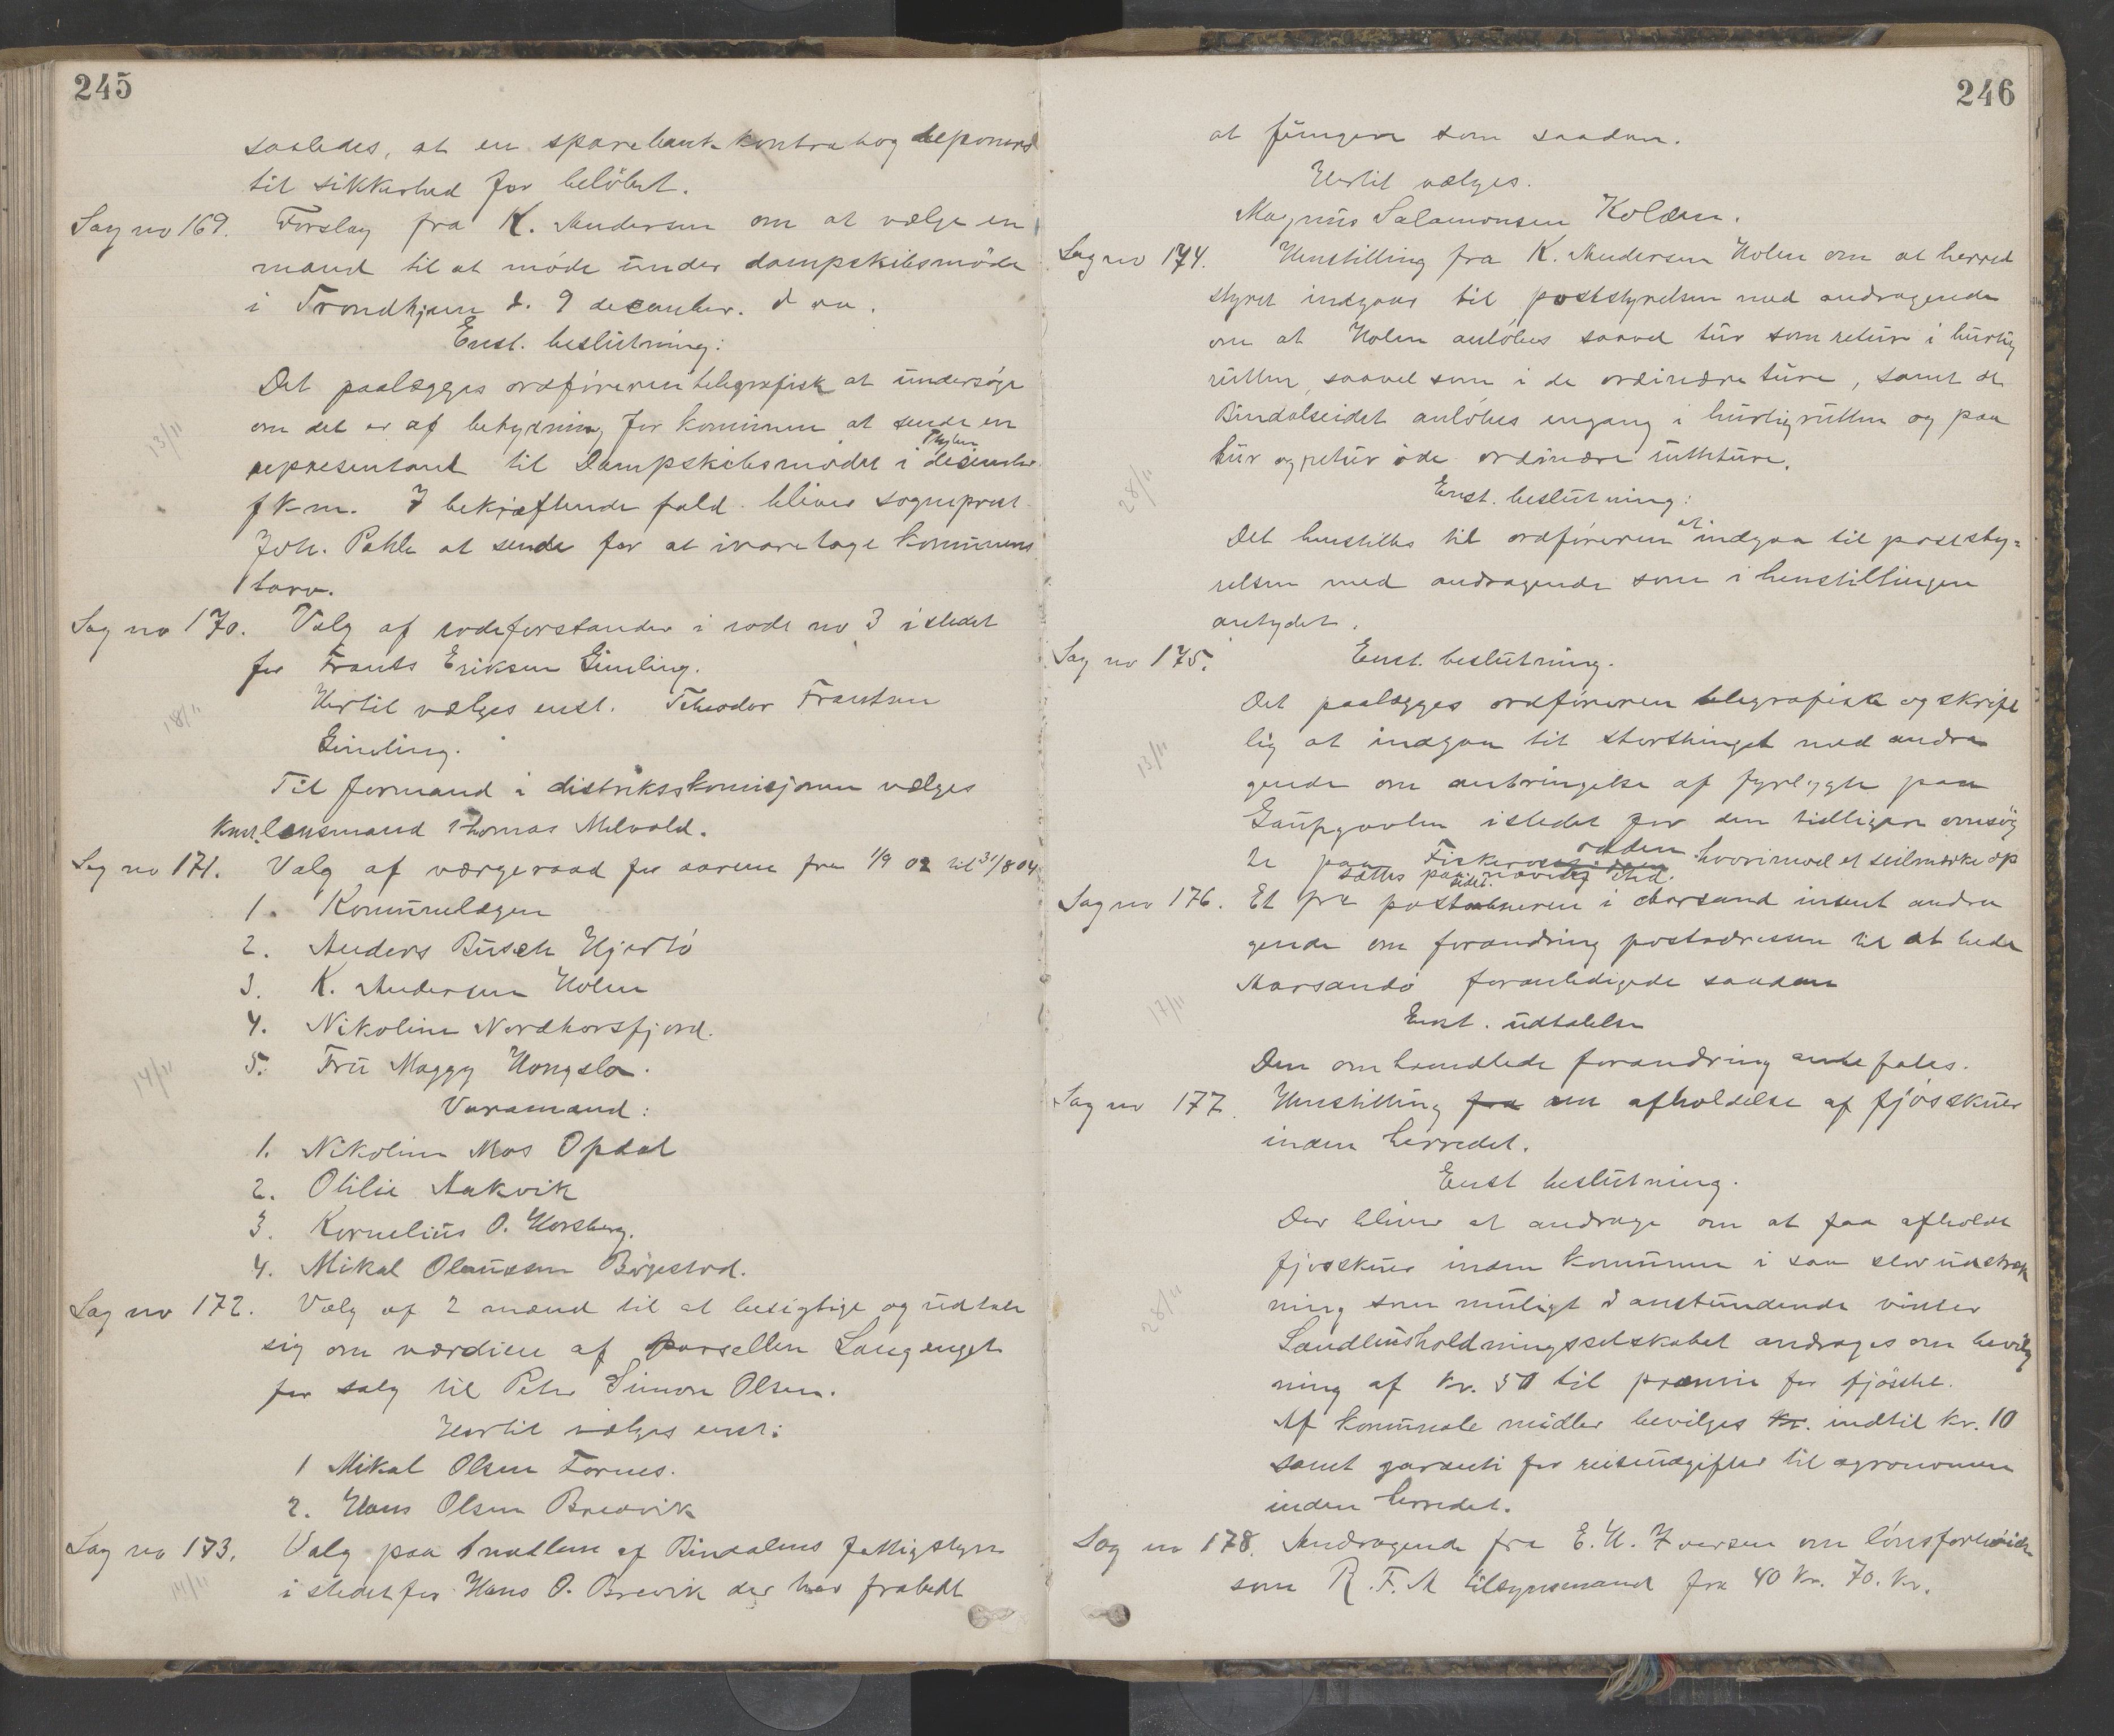 245
saaledes, at en sparebank kontrabog deponeres
til sikkerhed for belöbet.
Sag no 169. Forslag fra K. Andersen om at vælge en
mand til at möde under dampskibsmöde
i Trondhjem d. 9 december. d aa.
Enst. beslutning:
Det paalægges ordföreren telegrafisk at undersöge
om det er af betydning for kommunen at sende en
repræsentant til Dampskibsmödet i december
13/11
f k m. I bekræftende fald bliver sogneprest
Joh. Pahle at sende for at ivaretage kommunens
tarv.
Sag no 170. Valg af rodeforstander i rode no 3 istedet
for Frants Eriksen Gimling.
Hertil vælges enst. Theodor Frantsen
18/11
Gimling.
Til formand i distriktskomisjonen vælges
lensmand Thomas Melvold.
Sag no 171. Valg af værgeraad for aarene fra 1/9 02 til 31/8 04
1. Kommunelægen
2. Anders Busch Hjertö
3. K. Andersen Holm
4. Nikoline Nordhorsfjord.
5. Fru Maggy Hongslo.
14/11
Varamænd:
1. Nikoline Mos Opdal
2. Otilie Aakvik
3. Kornelius O. Horsberg.
4. Mikal Olaussen Bögestad.
Sag no 172. Valg af 2 mænd til at besigtige og udtale
sig om værdien af parsellen Langenget
for salg til Peter Simon Olsen.
Hertil vælges enst:
1 Mikal Olsen Fornes.
2. Hans Olsen Bredvik
Sag no 173. Valg paa 1 medlem af Bindalens fattigstyre
14/11
i stedet for Hans O. Brevik der har frabedt
246
at fungere som saadan.
Hertil vælges.
Magnus Salamonsen Kolden.
Sag no 174. Henstilling fra K. Andersen Holm om at herred
styret indgaar til poststyrelsen med andragende
om at Holm anlöbes saavel tur som retur i hurtig
rutten, saavel som i de ordinære ture, samt at
Bindalseidet anlöbes engang i hurtigrutten og paa
28/11
tur og retur i de ordinære rutture.
Enst. beslutning:
Det henstilles til ordföreren at indgaa til poststy=
relsen med andragende som i henstillingen
antydet.
Sag no 175. Enst. beslutning.
Det paalægges ordföreren telegrafisk og skrift
lig at indgaa til storthinget med andra
13/11
gende om anbringelse af fyrlygte paa
Gaupgavlen istedet for den tidligere omsög
te paa Fiskeros hvorimod et seilmærke op
sættes paa stedet.
Sag no 176. Et fra postaabneren i Aarsand insent andra
gende om forandring postadressen til at hede
Aarsandö foranledigede saadan
17/11
Enst. udtalelse
Den omhandlede forandring anbefales.
Sag no 177. Henstilling fra om afholdelse af fjösskuer
inden herredet.
Enst beslutning.
Der bliver at andrage om at faa afholdt
fjösskuer inden kommunen i saa stor udstræk
ning som muligt i anstundende vinter
28/11
Landhusholdningsselskabet andrages om bevilg
ning af kr. 50 til præmie for fjösstel.
Af kommunale midler bevilges kr. indtil kr. 10
samt garanti for reiseudgifter til agronomen
inden herredet.
Sag no 178. Andragende fra E. H. Iversen om lönsforhöielse
som R. F. A tilsynsmand fra 40 kr. 70. kr.